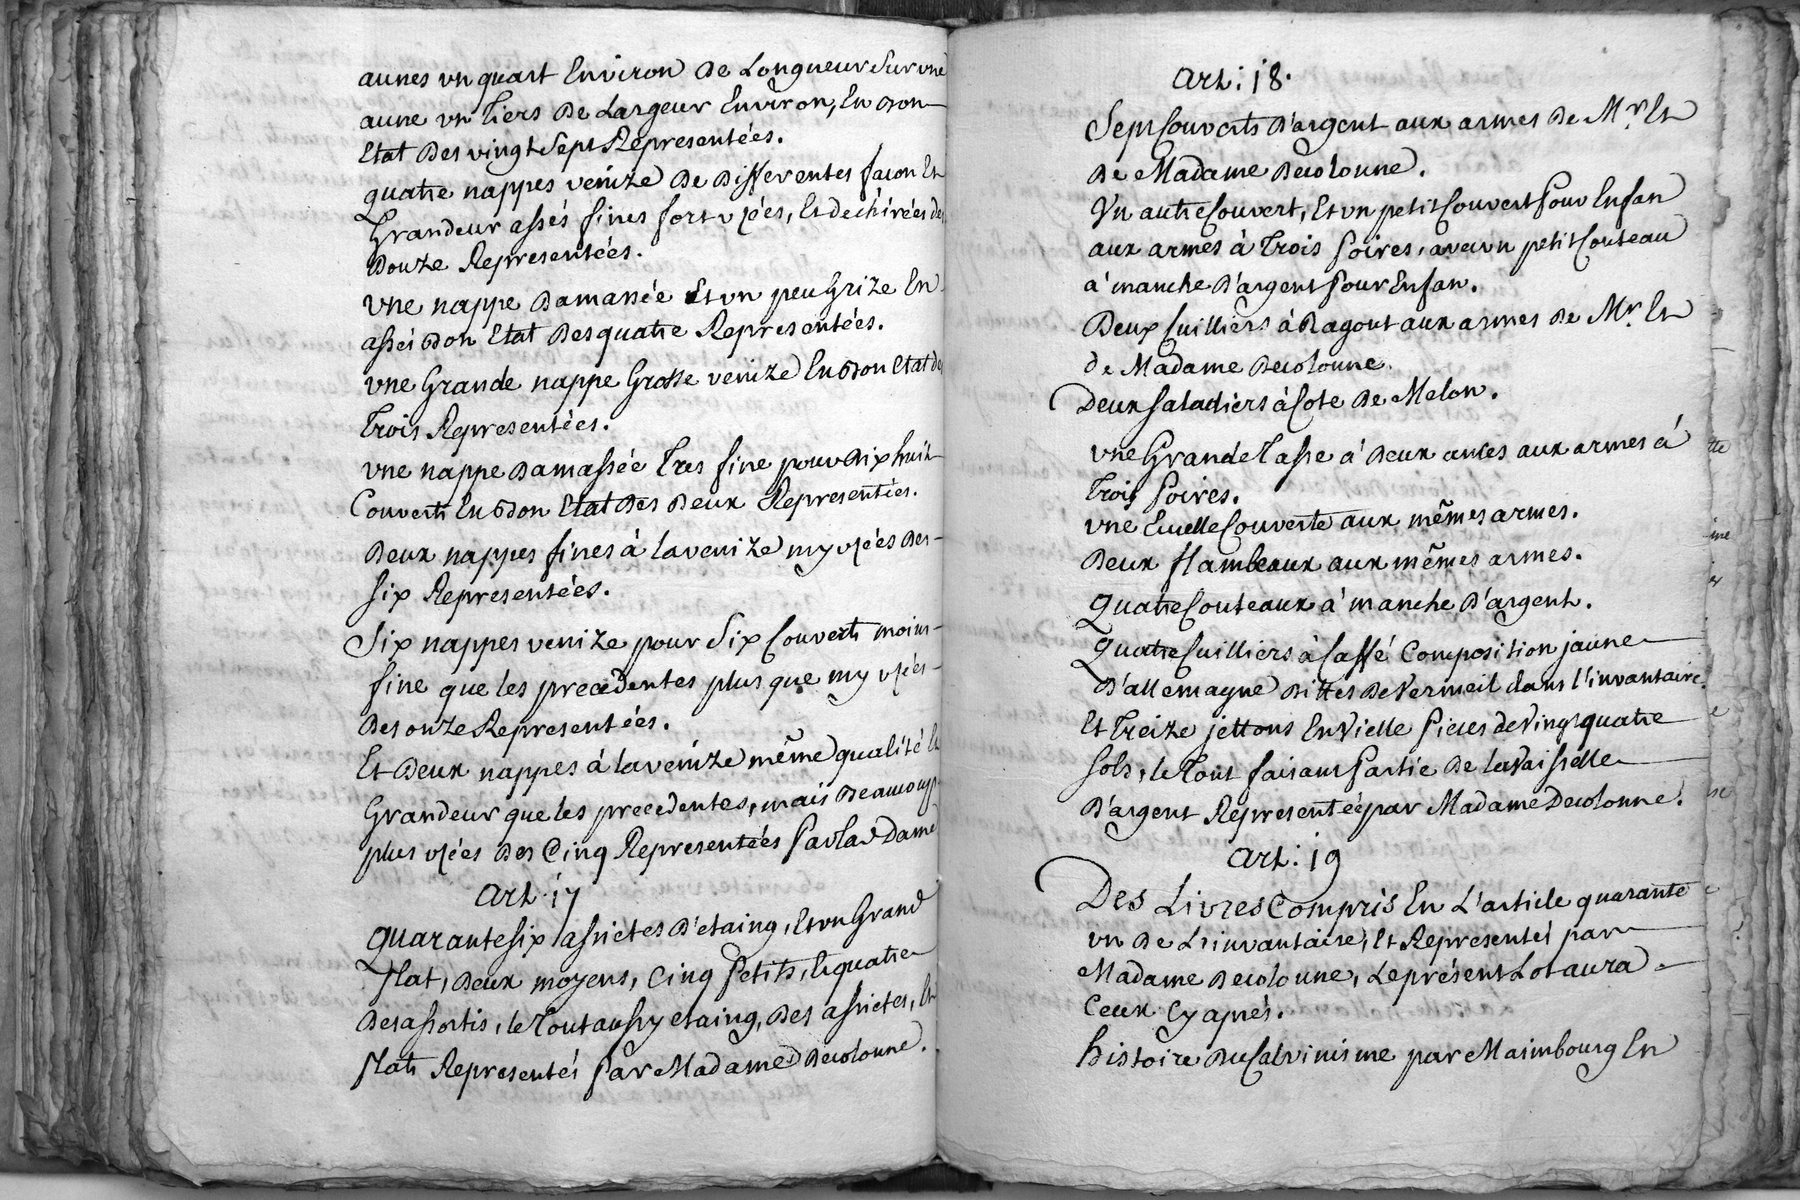 aunes vn quart Environ De Longueur Sur vne
aune vn Tiers De Largeur Environ, En bon
Etat Des vingt Sept Representées.
quatre nappes venize De Differentes facon Et
Grandeur assés fines fort vzées, Et dechirées des
Douze Representées.
vne nappe Damassée Et vn peu Grize En
assés bon Etat Des quatre Representées.
vne Grande nappe Grosse venize En bon Etat des
Trois Representées.
vne nappe Damassée Tres fine pour Dix huit
Couverts En bon Etat Des Deux Representées.
Deux nappes fines à la venize my vzées Des
Six Representées.
Six nappes venize pour Six Couverts moins
fine que les precedentes plus que my vzées
Des onze Representées.
Et Deux nappes à la venize même qualité Et
Grandeur que les precedentes, mais Beaucoup
plus vzées Des Cinq Representées Par lad Dame
Art. 17
Quarante six assietes D'etaing, Et vn Grand
Plat, Deux moyens, Cinq Petits, Et quatre
Desassortis, le Tout aussy etaing, Des assietes, Et
Plats Representés Par Madame Decolonne.
Art: 18.
Sept Couverts D'argent aux armes De Mr. Et
De Madame Decolonne.
Vn autre Couvert, Et vn petit Couvert Pour Enfan
aux armes à Trois Poires, avec vn petit Couteau
à manche D'argent Pour Enfan.
Deux Cuilliers à Ragout aux armes De Mr. Et
de Madame Decolonne.
Deux Saladiers à Cote De Melon.
vne Grande Tasse à Deux anses aux armes à
Trois Poires.
vne Ecuelle Couverte aux mêmes armes.
Deux flambeaux aux mêmes armes.
Quatre Couteaux à manche D'argent.
Quatre Cuilliers à Caffé Composition jaune
D'allemagne Dittes De Vermeil dans l'invantaire.
Et Treize jettons En Vielle Pieces de Vingt quatre
Sols, le Tout faisant Partie De la Vaisselle
D'argent Representée par Madame Decolonne.
Art: 19
Des Livres Compris En L'article quarante
vn De L'invantaire, Et Representés par
Madame Decolonne, Le présent Lot aura
Ceux Cy aprés.
histoire Du Calvinisme par Maimbourg En